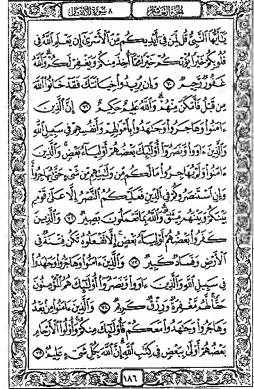 الجزء العاشر ٨ سورة الأنفال
يَٰٓأَيُّهَا ٱلنَّبِيُّ قُل لِّمَن فِيٓ أَيۡدِيكُم مِّنَ ٱلۡأَسۡرَىٰٓ إِن يَعۡلَمِ ٱللَّهُ فِي
قُلُوبِكُمۡ خَيۡرٗا يُؤۡتِكُمۡ خَيۡرٗا مِّمَّآ أُخِذَ مِنكُمۡ وَيَغۡفِرۡ لَكُمۡۚ وَٱللَّهُ
غَفُورٞ رَّحِيمٞ ٧٠ وَإِن يُرِيدُواْ خِيَانَتَكَ فَقَدۡ خَانُواْ ٱللَّهَ
مِن قَبۡلُ فَأَمۡكَنَ مِنۡهُمۡۗ وَٱللَّهُ عَلِيمٌ حَكِيمٌ ٧١ إِنَّ ٱلَّذِينَ
ءَامَنُواْ وَهَاجَرُواْ وَجَٰهَدُواْ بِأَمۡوَٰلِهِمۡ وَأَنفُسِهِمۡ فِي سَبِيلِ ٱللَّهِ
وَٱلَّذِينَ ءَاوَواْ وَّنَصَرُوٓاْ أُوْلَٰٓئِكَ بَعۡضُهُمۡ أَوۡلِيَآءُ بَعۡضٖۚ وَٱلَّذِينَ
ءَامَنُواْ وَلَمۡ يُهَاجِرُواْ مَا لَكُم مِّن وَلَٰيَتِهِم مِّن شَيۡءٍ حَتَّىٰ يُهَاجِرُواْۚ
وَإِنِ ٱسۡتَنصَرُوكُمۡ فِي ٱلدِّينِ فَعَلَيۡكُمُ ٱلنَّصۡرُ إِلَّا عَلَىٰ قَوۡمِۭ
بَيۡنَكُمۡ وَبَيۡنَهُم مِّيثَٰقٞۗ وَٱللَّهُ بِمَا تَعۡمَلُونَ بَصِيرٞ ٧٢ وَٱلَّذِينَ
كَفَرُواْ بَعۡضُهُمۡ أَوۡلِيَآءُ بَعۡضٍۚ إِلَّا تَفۡعَلُوهُ تَكُن فِتۡنَةٞ فِي
ٱلۡأَرۡضِ وَفَسَادٞ كَبِيرٞ ٧٣ وَٱلَّذِينَ ءَامَنُواْ وَهَاجَرُواْ وَجَٰهَدُواْ
فِي سَبِيلِ ٱللَّهِ وَٱلَّذِينَ ءَاوَواْ وَّنَصَرُوٓاْ أُوْلَٰٓئِكَ هُمُ ٱلۡمُؤۡمِنُونَ
حَقّٗاۚ لَّهُم مَّغۡفِرَةٞ وَرِزۡقٞ كَرِيمٞ ٧٤ وَٱلَّذِينَ ءَامَنُواْ مِنۢ بَعۡدُ
وَهَاجَرُواْ وَجَٰهَدُواْ مَعَكُمۡ فَأُوْلَٰٓئِكَ مِنكُمۡۚ وَأُوْلُواْ ٱلۡأَرۡحَامِ
بَعۡضُهُمۡ أَوۡلَىٰ بِبَعۡضٖ فِي كِتَٰبِ ٱللَّهِۚ إِنَّ ٱللَّهَ بِكُلِّ شَيۡءٍ عَلِيمُۢ ٧٥
١٨٦